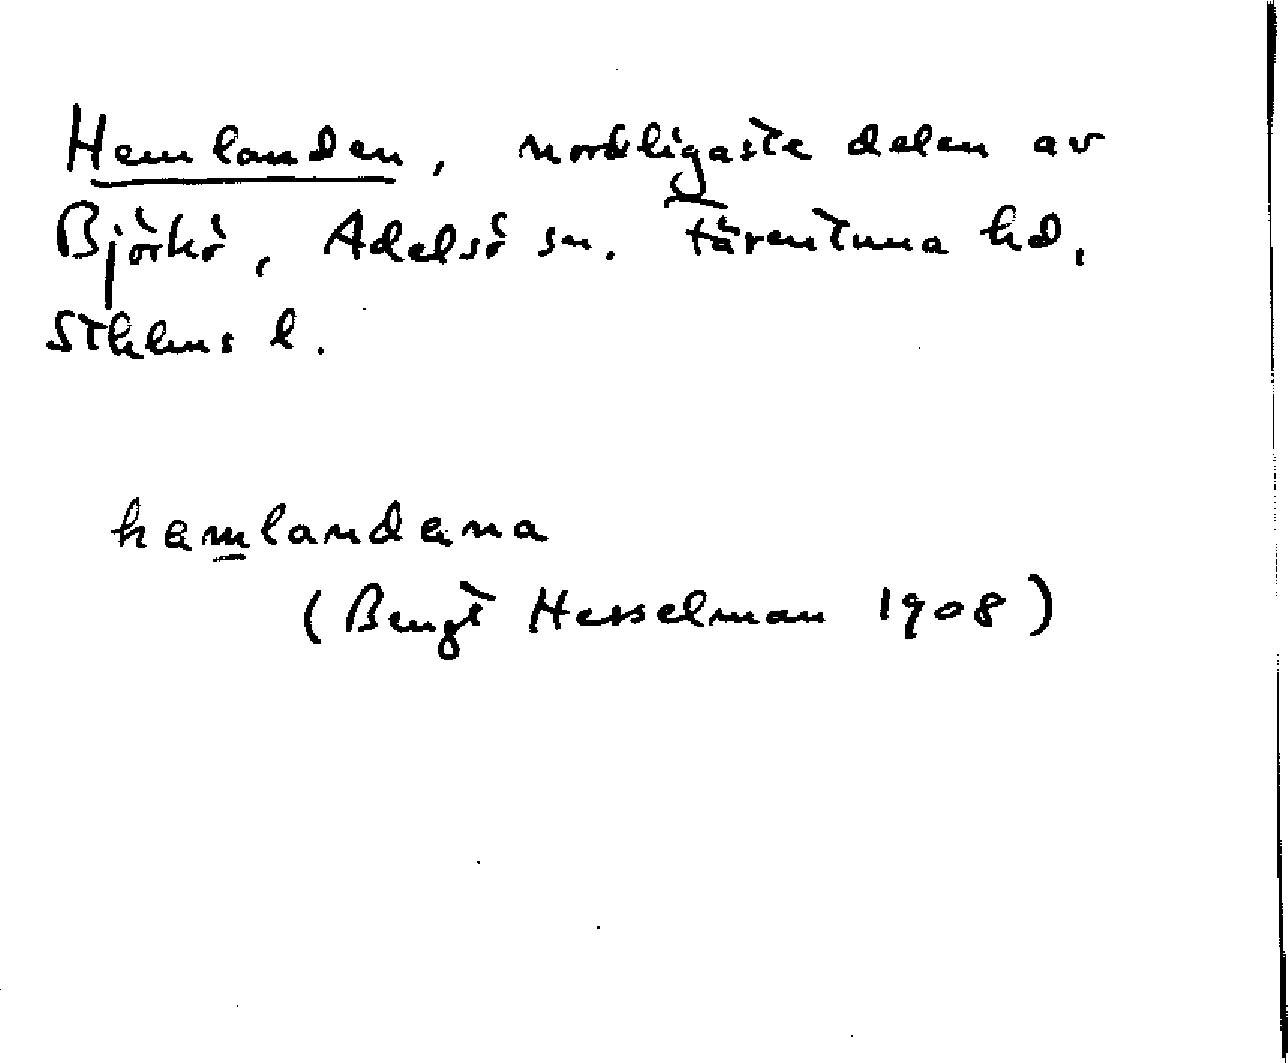 Hemlanden, nordligaste delen av
Björkö, Adelsö sn. Färentuna hd,
Sthlms l.
hemlandena
(Bengt Hesselman 1908)